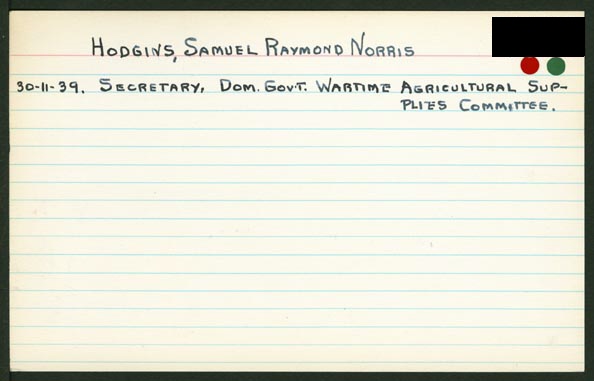 Hodgins, Samuel Raymond Norris
30-11-39. Secretary, Dom. Gov't. Wartime Agricultural Sup-
plies Committee.